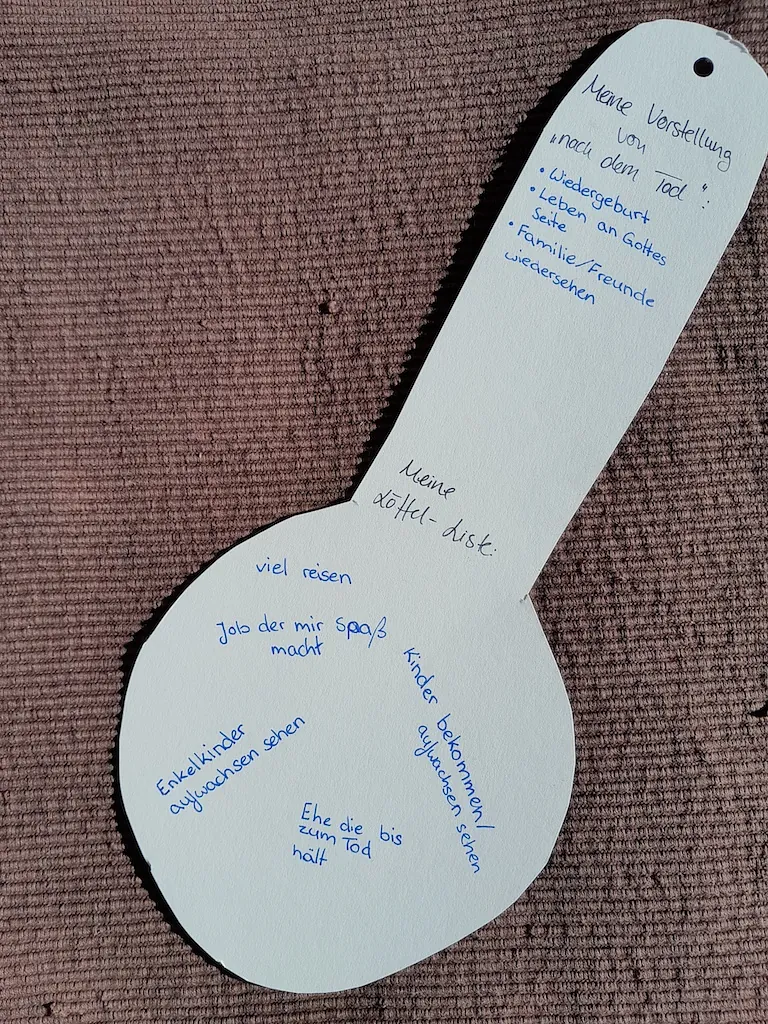 Meine Vorstellung
von
„nach dem Tod“:
• Wiedergeburt
• Leben an Gottes
Seite
• Familie/Freunde
wiedersehen
Meine
Löffel-Liste:
viel reisen
Job der mir Spaß
macht
Kinder bekommen/
aufwachsen sehen
Enkelkinder
aufwachsen sehen
Ehe die bis
zum Tod
hält